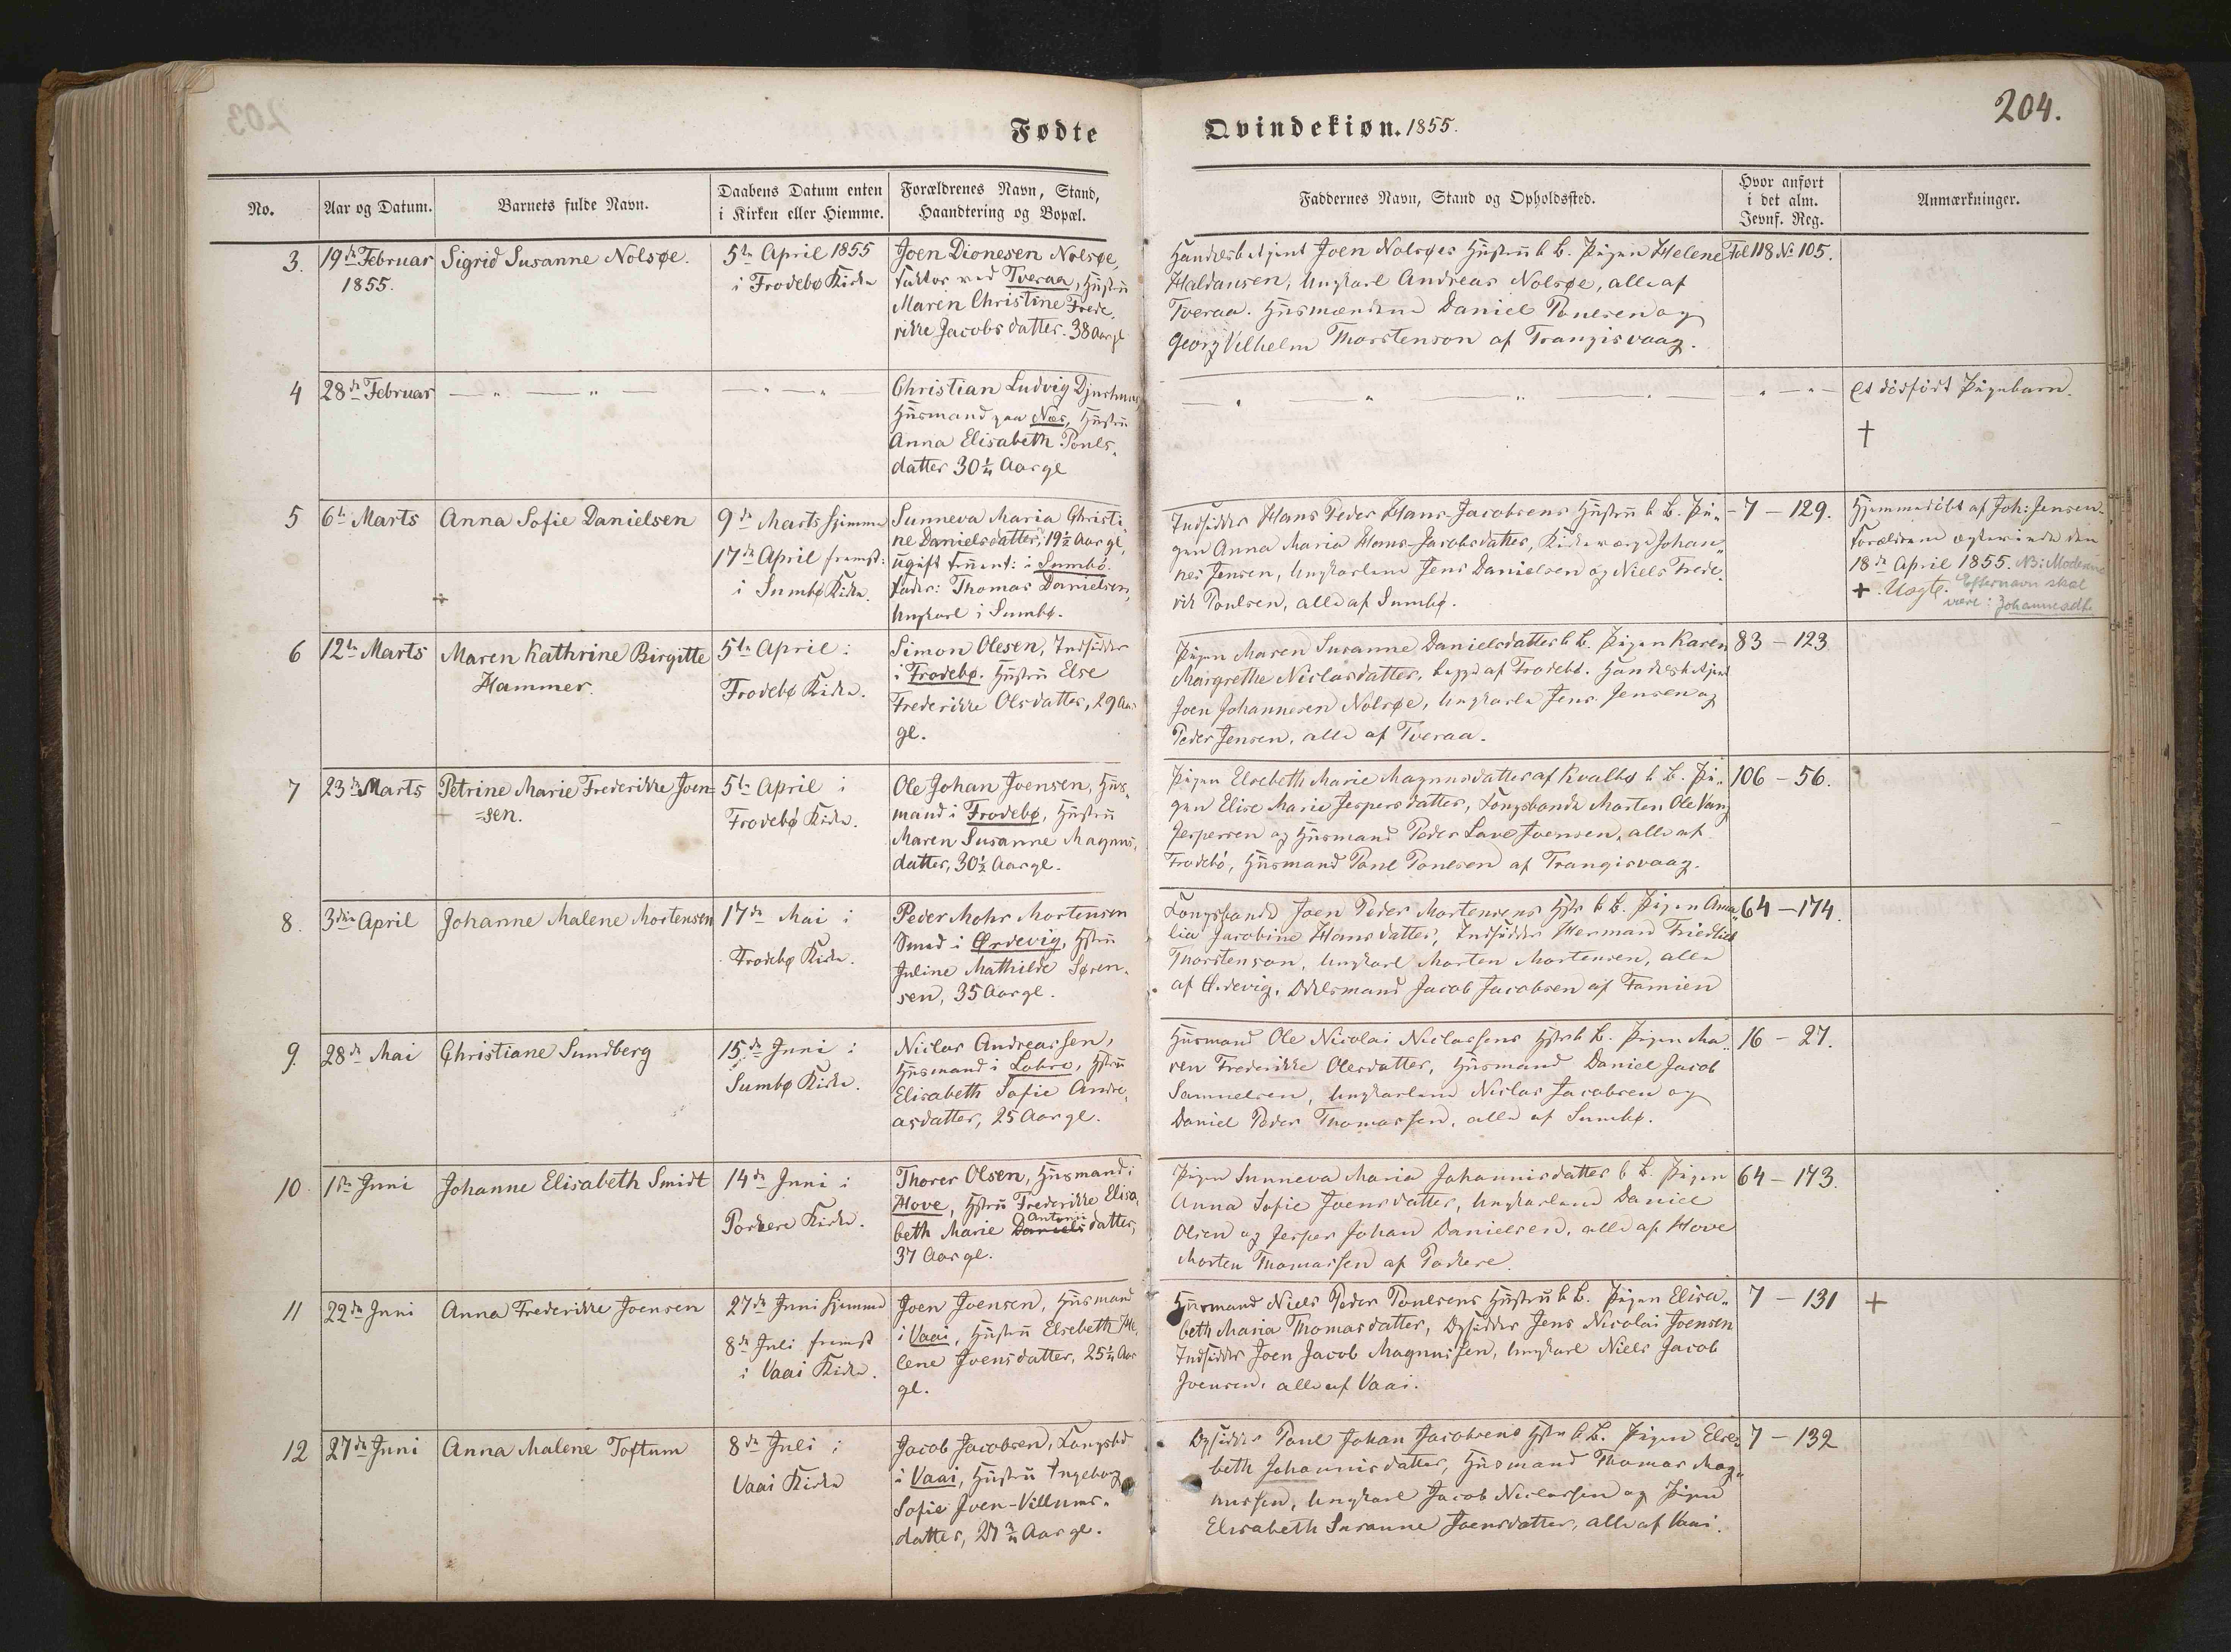 203
204.
Fødte
Qvindekiøn. 1855.
No.
Aar og Datum.
Barnets fulde Navn.
Daabens Datum enten
i Kirken eller Hiemme.
Forældrenes Navn, Stand,
Haandtering og Bopæl.
Faddernes Navn, Stand og Opholdssted.
Hvor anført
i det alm.
Jevnf. Reg.
Anmærkninger.
3.
19de Februar
1855.
Sigrid Susanne Nolsøe.
5te April 1855
i Frodebø Kirke
Joen Dionesen Nolsøe,
Faktor ved Tveraa, Hustru
Maren Christine Frede-
rikke Jacobsdatter. 38 Aar gl
Handelsbetjent Joen Nolsøes Hustru b. B. Pigen Helene
Haldansen, Ungkarl Andreas Nolsøe, alle af
Tveraa. Husmændene Daniel Poulsen og
Georg Vilhelm Thorstenson af Trangisvaag.
Fol 118 No 105.
4
28de Februar
Christian Ludvig Djurhuus
Husmand paa Næs, Hustru
Anna Elisabeth Pouls-
datter 30 1/4 Aar gl
et dödfödt Pigebarn.
†
5
6te Marts
Anna Sofie Danielsen
9de Marts hjemme
17de April fremst:
i Sumbø Kirke.
Sunneva Maria Christi-
ne Danielsdatter, 19 1/2 Aar gl,
ugift Fruent: i Sumbö.
Fader: Thomas Danielsen,
Ungkarl i Sumbø.
Indsidder Hans Peder Hans-Jacobsens Hustru b. B. Pi-
gen Anna Maria Hans-Jacobsdatter, Kirkeværge Johan-
nes Jensen, Ungkarlene Jens Danielsen og Niels Frede-
rik Poulsen, alle af Sumbø.
7 – 129.
Hjemmedöbt af Joh: Jensen.
Forældrene ægteviede den
18de April 1855. NB: Moderens
+ Uægte. Efternavn skal
være: Johannesdtr.
6
12te Marts
Maren Kathrine Birgitte
Hammer.
5te April i
Frodebø Kirke.
Simon Olesen, Indsidder
i Frodebø. Hustru Else
Frederikke Olsdatter, 29 Aar
gl.
Pigen Maren Susanne Danielsdatter b. B. Pigen Karen
Margrethe Niclasdatter, begge af Frodebø. Handelsbetjent
Joen Johannesen Nolsøe, Ungkarle Jens Jensen og
Peder Jensen, alle af Tveraa.
83 – 123
7
23de Marts
Petrine Marie Frederikke Joen=
=sen.
5te April i
Frodebø Kirke.
Ole Johan Joensen, Hus-
mand i Frodebø, Hustru
Maren Susanne Magnus-
datter, 30 1/2 Aar gl.
Pigen Elsebeth Marie Magnusdatter af Kvalbø b. B. Pi-
gen Elise Marie Jespersdatter, Kongsbonde Morten Ole Vang
Jespersen og Husmand Peder Lave Joensen, alle af
Frodebø, Husmand Poul Poulsen af Trangisvaag.
106 – 56.
8.
3die April
Johanne Malene Mortensen
17de Mai i
Frodebø Kirke.
Peder Mohr Mortensen
Smed i Ørdevig, Hstru
Juline Mathilde Søren-
sen, 35 Aar gl.
Kongsbonde Joen Peder Mortensens Hstr b. B. Pigen Ama-
lia Jacobine Hansdatter, Indsidder Herman Friedlieb
Thorstenson, Ungkarl Morten Mortensen, alle
af Ørdevig, Odelsmand Jacob Jacobsen af Famien
64 – 174.
9.
28de Mai
Christiane Sundberg
15de Juni i
Sumbø Kirke.
Niclas Andreassen,
Husmand i Lobro, Hstru
Elisabeth Sofie Andre-
asdatter, 25 Aar gl.
Husmand Ole Nicolai Niclassens Hstr b. B. Pigen Ma-
ren Frederikke Olesdatter, Husmand Daniel Jacob
Samuelsen, Ungkarlene Niclas Jacobsen og
Daniel Peder Thomassen, alle af Sumbø.
16 – 27.
10.
1ste Juni
Johanne Elisabeth Smidt
14de Juni i
Porkere Kirke.
Thorer Olsen, Husmand i
Hove, Hstru Frederikke Elisa-
beth Marie Daniels Antoni datter,
37 Aar gl.
Pigen Sunneva Maria Johannisdatter b. B. Pigen
Anna Sofie Joensdatter, Ungkarlene Daniel
Olsen og Jesper Johan Danielsen, alle af Hove
Morten Thomassen af Porkere.
64 – 173.
11
22de Juni
Anna Frederikke Joensen
27de Juni hjemme
8de Juli fremst
i Vaai Kirke.
Joen Joensen, Husmand
i Vaai, Hustru Elsebeth He-
lene Joensdatter, 25 1/4 Aar
gl.
Husmand Niels Peder Poulsens Hustru b. B. Pigen Elisa-
beth Maria Thomasdatter, Opsidder Jens Nicolai Joensen
Indsidder Joen Jacob Magnussen, Ungkarl Niels Jacob
Joensen, alle af Vaai.
7 – 131
+
12
27de Juni
Anna Malene Toftum
8de Juli i
Vaai Kirke
Jacob Jacobsen, Kongsbd
i Vaai, Hustru Ingeborg
Sofie Joen-Villums-
datter, 27 3/4 Aar gl.
Opsidder Poul Johan Jacobsens Hstr b. B. Pigen Else-
beth Johannisdatter, Husmand Thomas Mag-
nussen, Ungkarl Jacob Niclassen og Pigen
Elisabeth Susanne Joensdatter, alle af Vaai.
7 – 132